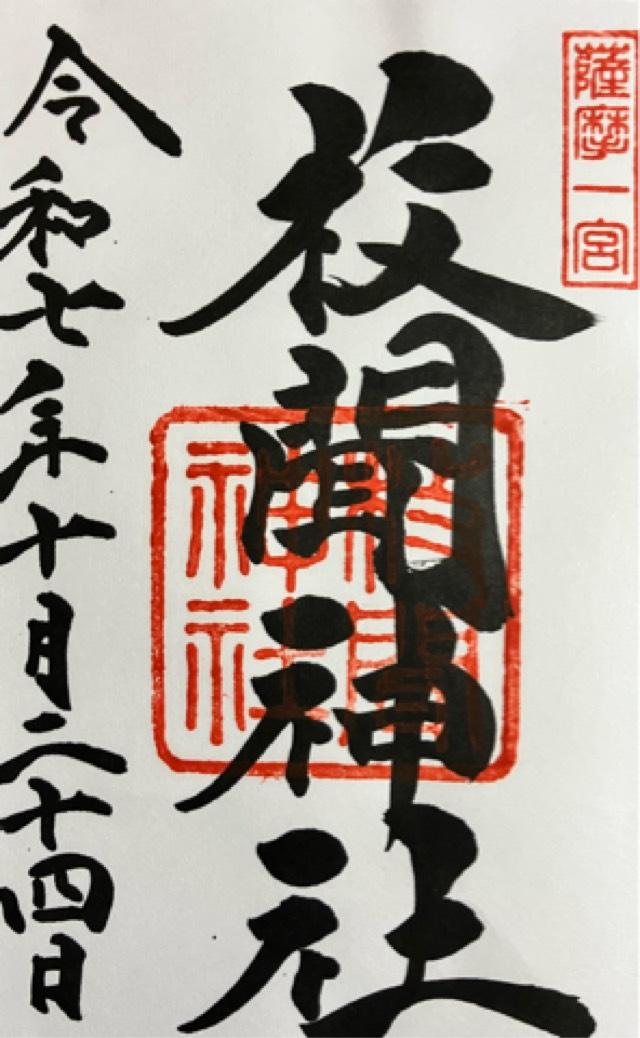 薩摩一宮
枚聞神社
枚聞
神社
令和七年十月二十四日